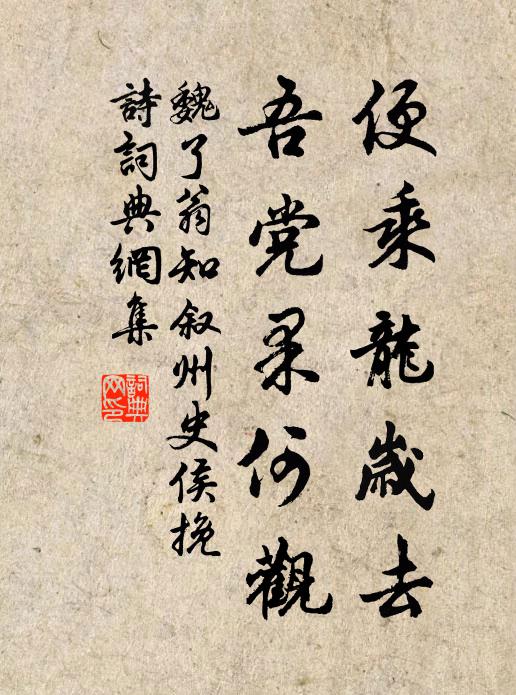 便乘龍歲去
吾党果何觀
魏了翁知叙州史侯挽
詩詞典網集
詞典网印